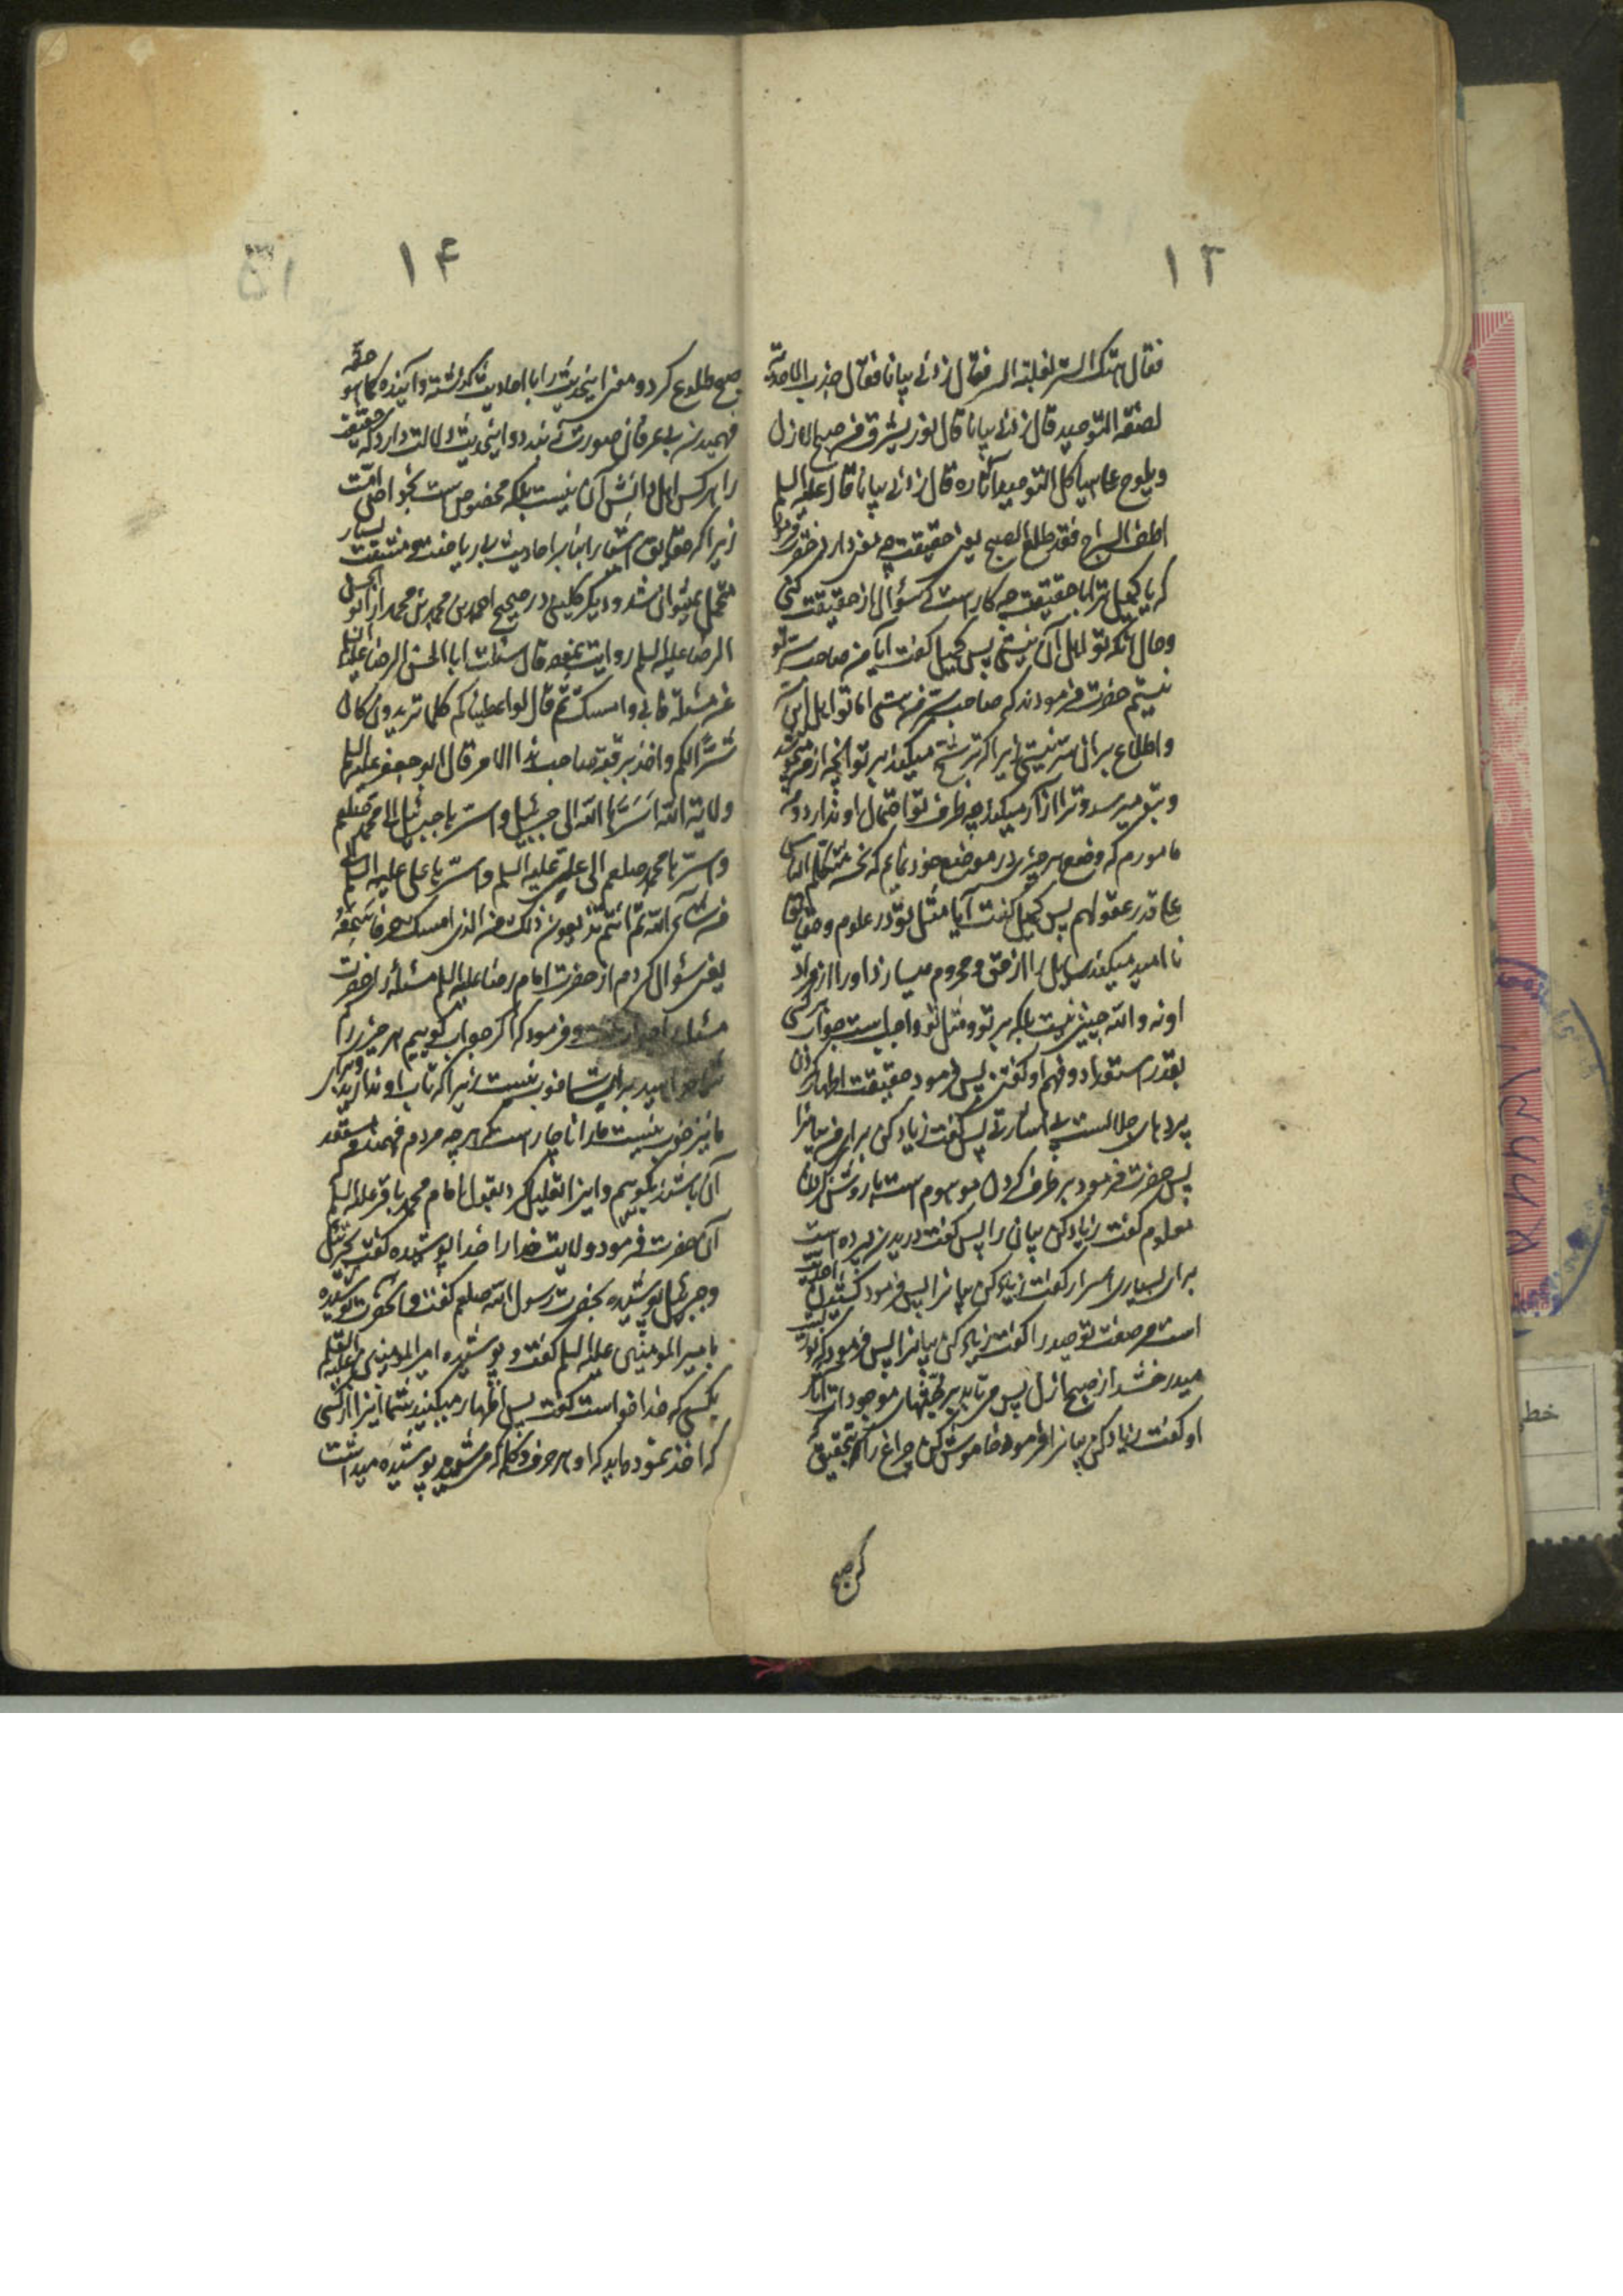 ۱۳
فقال هتک الستر لغلبة السر فقال زدنی بیانا فقال جذب الاحدیة
لصفة التوحید قال زدنی بیانا قال نور یشرق من صبح الازل
ویلوح علی هیاکل التوحید آثاره قال زدنی بیانا قال علیه السلم
اطف السراج فقد طلع الصبح یعنی حقیقت چه معنی دارد حضرت فرمود
که یا کمیل ترا با حقیقت چه کار است که سؤال از حقیقت کنی
وحال آنکه تو اهل آن نیستی پس کمیل گفت آیا من صاحب سر تو
نیستم حضرت فرمودند که صاحب سر من هستی اما تو اهل این
واطلاع بر آن سر نیستی زیرا که ترشح میکند بر تو آنچه از من
وبتو میرسد وترا آزار میکند چه ظرف تو احتمال او ندارد و
مامورم که وضع هر چیزی در موضع خود نمایم که نحن نتکلم الناس
علی قدر عقولهم پس کمیل گفت آیا مثل تو در علوم وحقایق
نا امید میکند سایل را از حق ومحروم میسازد اورا از مراد
او نه والله چنین نیست بلکه بر تو ومثل تو واجبست جواب هر کس
بقدر استعداد وفهم او گفتن پس فرمود حقیقت اظهار کردن
پردهای جلالست بی اشارتی پس گفت زیاد کن برای من بیانرا
پس حضرت فرمود بر طرف کردن موهوم است با روشن کردن
معلوم گفت زیاد کن بیان را پس گفت دریدن پرده است
برای بسیاری اسرار گفت زیاد کن بیانرا پس فرمود کشیدن احدیت
است مر صفت توحید را گفت زیاد کن بیانرا پس فرمود که نوریست
میدرخشد از صبح ازل پس می تابد بر موجودات آثار
او گفت زیاد کن بیانرا فرمود خاموش کن چراغ را که بتحقیق
که صبح
۱۴
۱۵
صبح طلوع کرد ومعنی اینحدیث را با احادیث گذشته وآینده کما هو حقه
فهمیدن بی عرفان صورت نه بندد واینحدیث دلالت دارد که حقیقت
را هر کس اهل دانش آن نیست بلکه مخصوص است بخواص امت
زیرا که حقایق اسرار انبار احادیث را بی ریاضت ومشقت بسیار
متحمل نمیتوان شد ودیگر کلینی در صحیح احمد بن محمد بن محمد از ابو الحسن
الرضا علیه السلم روایت نموده قال سئلت ابا الحسن الرضا علیه السلم
عن مسئلة فابی وامسک ثم قال لو اعطیناکم کلما تریدون کان
شرا لکم واخذ برقبة صاحب هذا الامر قال ابو جعفر علیه السلم
ولایة الله اسرها الله الی جبرئیل واسرها جبرئیل الی محمد صلعم
واسرها محمد صلعم الی علی علیه السلم واسرها علی علیه السلم
من شاء الله ثم انتم تذیعون ذلک من الذی امسک حرفا سمعه
یعنی سؤال کردم از حضرت امام رضا علیه السلم مسئله آن حضرت
وفرمود که اگر جواب گوییم هر چیز را که
برای شما خوب نیست زیرا که تاب او ندارید وبرای
ما نیز خوب نیست مارا ناچار است که هر چه مردم فهمند ومستعد
آن باشند بگوییم واین را تعلیل کرد بقول امام محمد باقر علیه السلم
آن حضرت فرمود ولایت خدا را خدا پوشیده گفت بجبرئیل
وجبرئیل پوشیده بحضرت رسول الله صلعم گفت وآنحضرت پوشیده
بامیر المومنین علیه السلم گفت وپوشیده امیر المومنین علیه السلم
بکسی که خدا خواست گفت پس اظهار میکنید شما اینرا از کسی
که اخذ نمود مایه که او هر حرف وکلمه که می شنید پوشیده میداشت